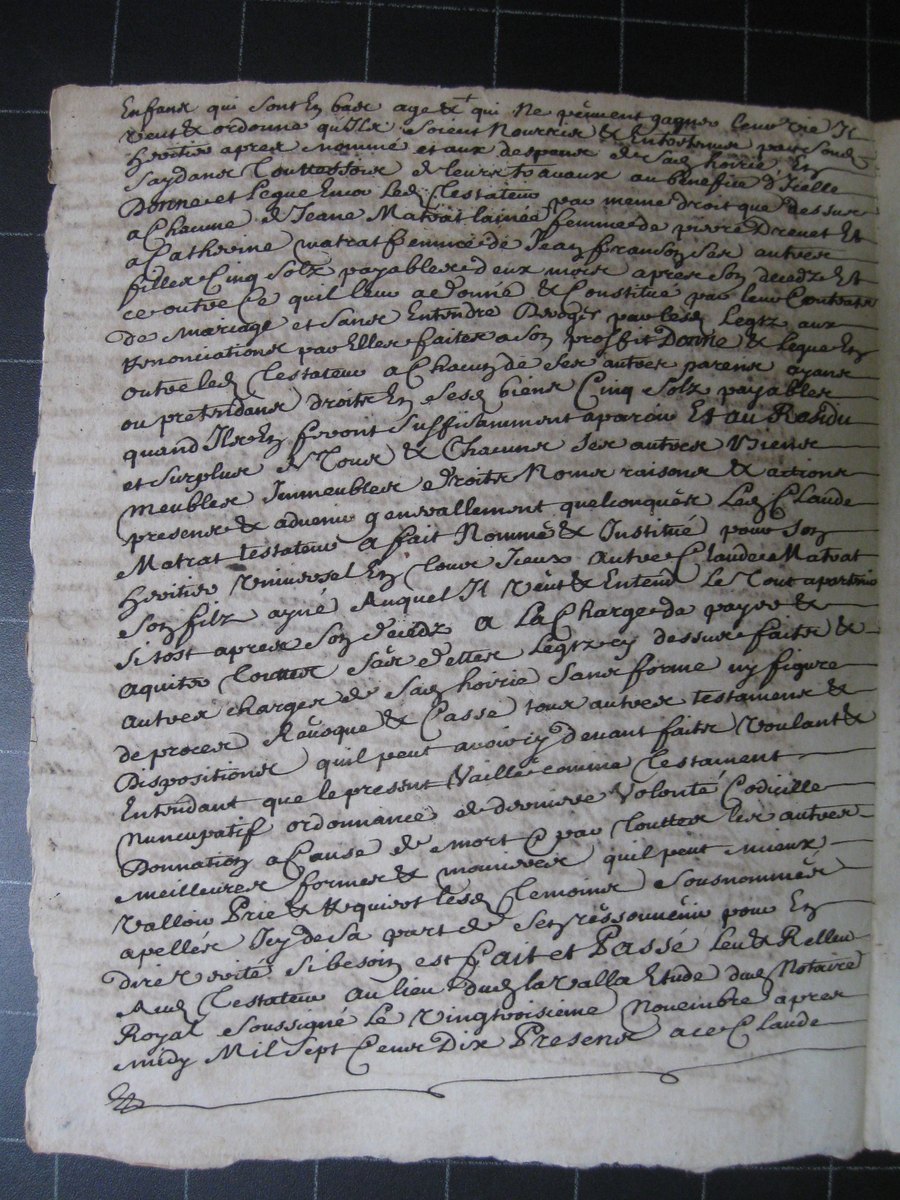 Enfans qui sont En bas age & qui Ne peuvent gagner leur vie Il
veut & ordonne qu'Ils soient Nourris & Entretenus par sond
heritier apres nommé et aux despens de sad hoirie En
faydans touttesfois de leurs travaux au benefice d'Icelle
Donne et legue Encor led testateur par meme droit que dessus
a Chacune de Jeane Matrat laînée femme de pierre Drevet Et
a Catherine matrat femme de Jean franson ses autres
filles Cinq solz payables deux mois apres son decedz Et
ce outre Ce quil leur a donné & Constitué par leur Contratz
de mariage et sans Entendre par lesd legtz aux
Renonciations par Elles faites a son proffit Donne & legue En
outre led testateur a Chacun de ses autres parens ayans
ou pretendans droits En sesd biens Cinq solz payables
quand Ils En feront suffisamment aparoir Et au Residu
et surplus de tous & Chacuns ses autres biens
meubles Immeubles droits Noms raisons & actions
presens & advenir generallement quelconques led Claude
Matrat testateur a fait Nommé & Institué pour son
heritier Universel En tous Iceux autre Claude Matrat
son filz ayné Auquel Il veut & Entend le tout apartenir
sitost apres son decedz a la Charge de payer &
aquiter touttes ses dettes legtz cy dessus faits &
autres charges de sad hoirie sans forme ny figure
de proces Revoque & Casse tous autres testamens &
Dispositions quil peut avoir cy devant faits voulant &
Entendant que le present vaille comme testament
nuncupatif ordonnance de derniere volonté Codicille
Donnation a Cause de mort & par touttes les autres
meilleures formes & manieres quil peut mieux
valloir Prie & Requiert lesd temoins sousnommés
apellés Icy de sa part de s'en ressouvenir pour En
dire verité si besoin est fait et Passé leu & Releu
Aud testateur au lieu dud lavalla Etude dud Notaire
Royal soussigné le vingtroisieme Novembre apres
midy Mil sept Cens Dix Presens a ce Claude